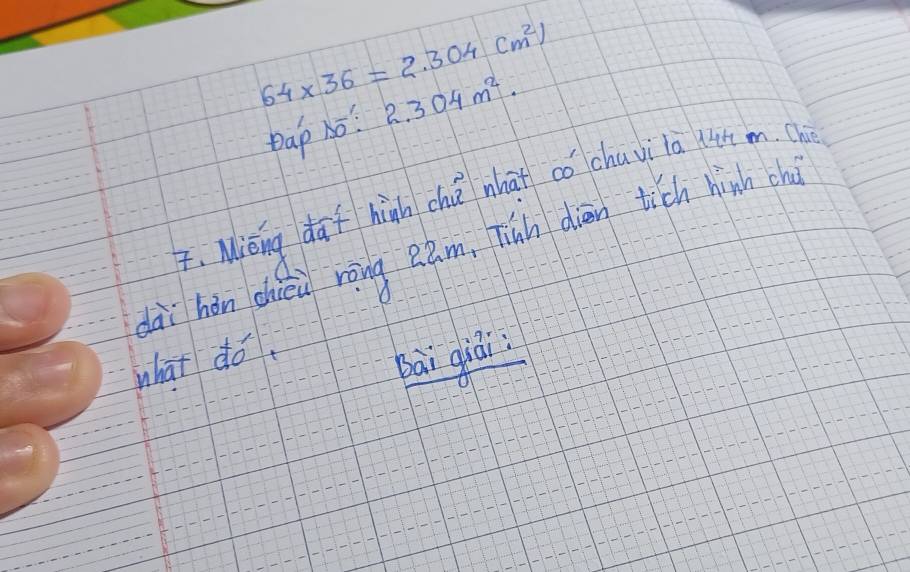 64 x 36 = 2.304 (m²)
Đáp số: 2.304 m².
7. Miếng đất hình chữ nhật có chu vi là 144 m. Chiề
dài hơn chiều rộng 22m. Tính diện tích hình chữ
nhật đó.
Bài giải: